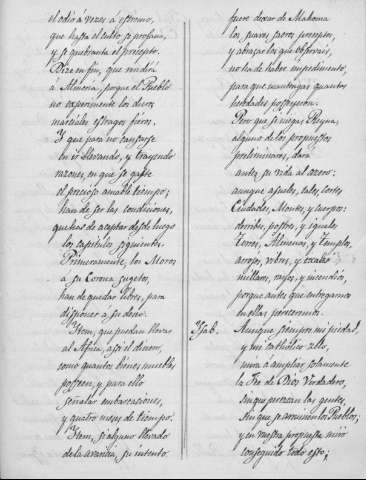 el odio á vezes á estremo,
que hasta el culto se profana,
y se quebranta el precepto.
Dize en fin, que rendirá
á Almeria, porque el Pueblo
no experimente los duros
marciales estragos fieros.
Y que para no cansarse
en ir llevando, y trayendo
razones, en que se gaste
el precioso amable tiempo;
han de ser las condiciones,
que has de aceptar desde luego
los capitulos siguientes.
Primeramente, los Moros
a su Corona sugetos,
han de quedar libres, para
disponer a su deseo.
Item, que puedan llevar
al Africa, assi el dinero,
como quantos bienes muebles
posseen, y para ello
señalar embarcaciones,
y quatro meses de tiempo.
Item, si alguno llevado
de la avaricia, su intento
fuere dexar de Mahoma
los suaves sacros preceptos,
y abrazar los que observais,
no ha de haber impedimento,
para que mantengas quantas
heredades possession.
Pero que si niegas, Reyna,
alguno de los propuestos
preliminares, dara
antes, su vida al azero:
aunque assaltes, tales, cortes
Ciudades, Montes, y cuerpos:
derribes, postres, y iguales
Torres, Almenas, y Templos,
arrojes, vibres, y exales
millares, rayos, y incendios,
porque antes que entregarnos
en ellas pereceremos.
Ysab. Aunque siempre mi piedad,
y mi catholico zelo,
mira á ampliar, solamente
la Fee de Dios Verdadero,
sin que perezcan las gentes,
sin que se arruinen los Pueblos;
y en vuestra propuesta miro
conseguido todo esto;